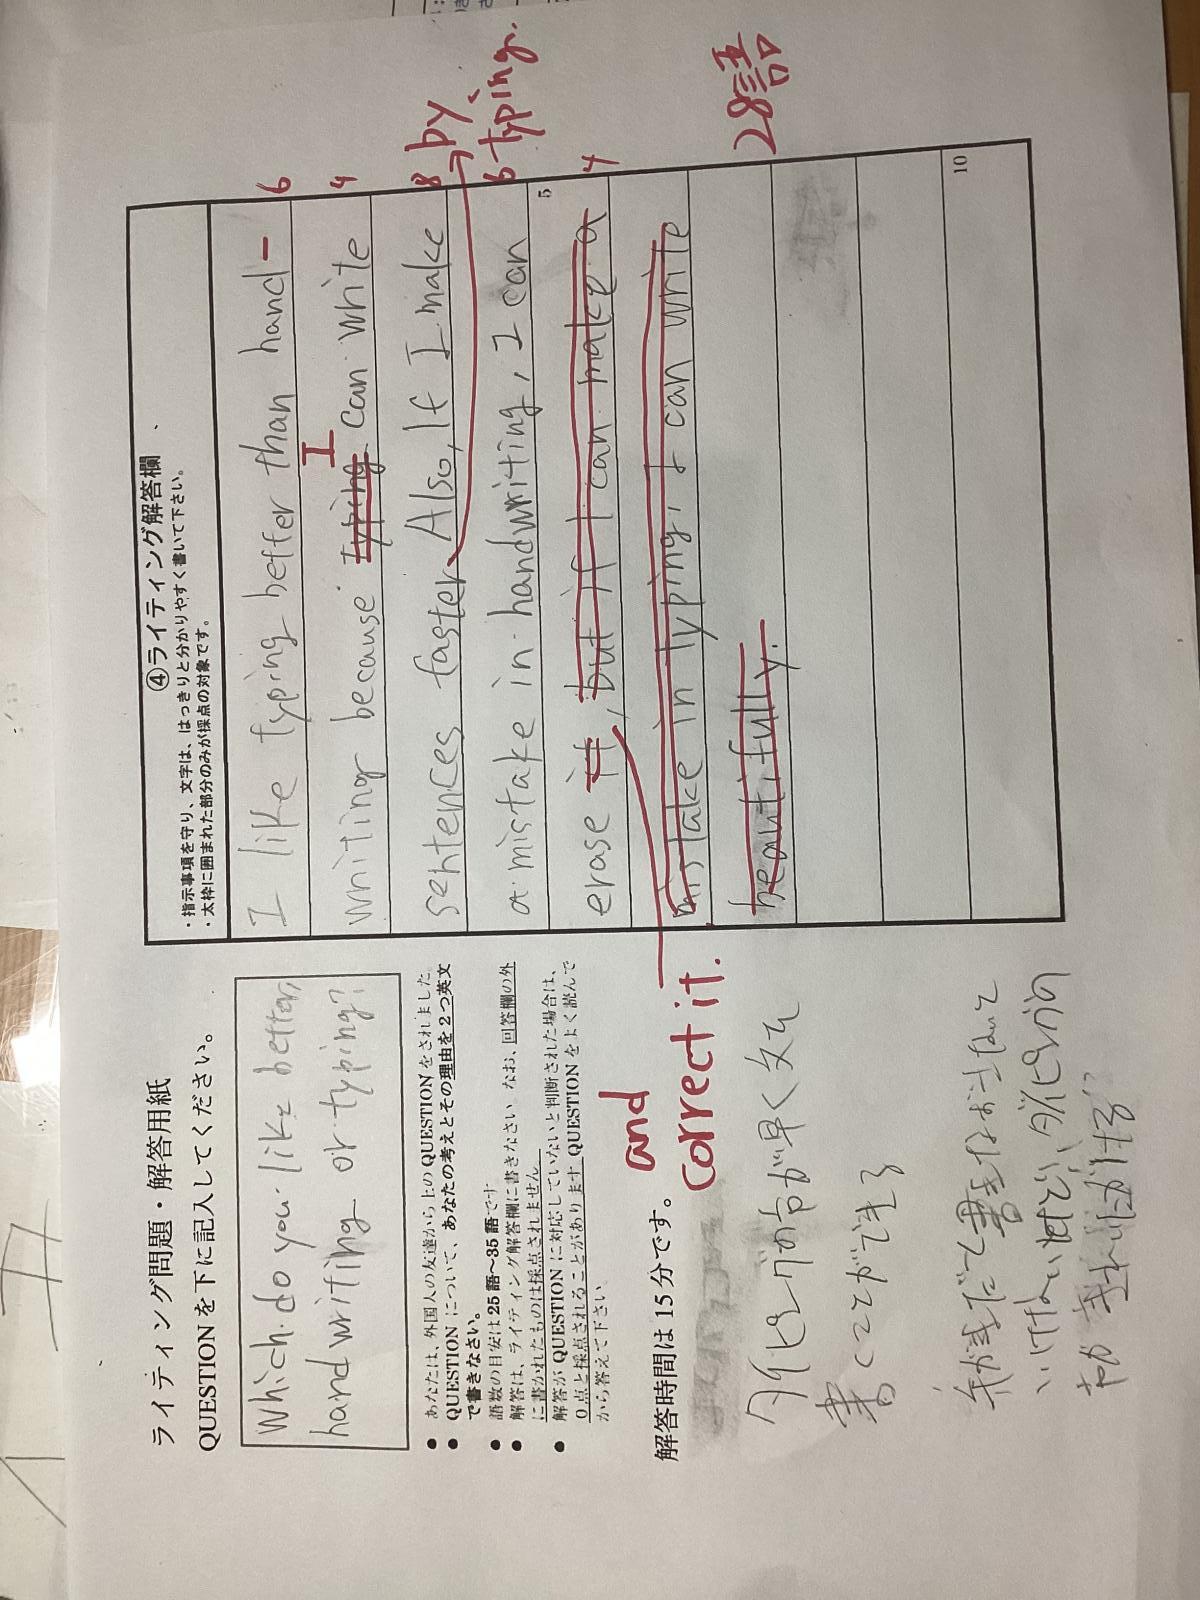 ライティング問題・解答用紙
QUESTIONを下に記入してください。
Which do you like better,
handwriting or typing?
● あなたは、外国人の友達から上のQUESTIONをされました
● QUESTIONについて、あなたの考えとその理由を2つ英文
で書きなさい。
● 語数の目安は25語～35語です
● 解答は、ライティング解答欄に書きなさい なお、回答欄の外
に書かれたものは採点されません
● 解答がQUESTIONに対応していないと判断された場合は、
0点と採点されることがあります QUESTIONをよく読んで
から答えて下さい
解答時間は15分です。
タイピングの方が早く文を
書くことができる
④ライティング解答欄
・指示事項を守り、文字は、はっきりと分かりやすく書いて下さい。
・太枠に囲まれた部分のみが採点の対象です。
I like typing better than hand- 6
writing because typing I can write 4
sentences faster. Also, If I make 8
by typing.
a mistake in handwriting, I can 6
5
erase it, but if I can make a 4
and correct it.
mistake in typing, I can write
beautifully.
28語
10